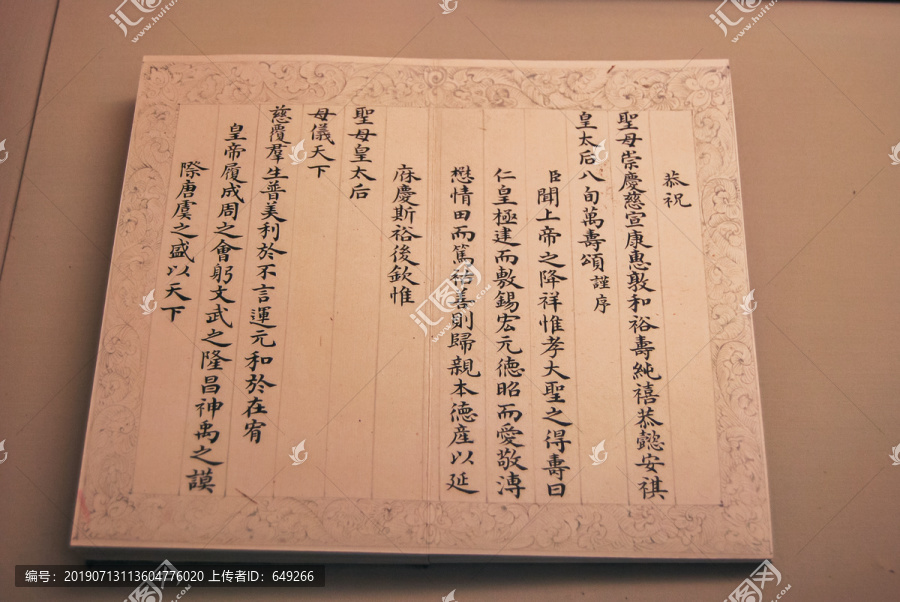 恭祝
聖母崇慶慈宣康惠敦和裕壽純禧恭懿安祺
皇太后八旬萬壽頌謹序
臣聞上帝之降祥惟孝大聖之得壽曰
仁皇極建而敷錫宏元德昭而愛敬溥
懋情田而篤祜善則歸親本德產以延
庥慶斯裕後欽惟
聖母皇太后
母儀天下
慈覆羣生普美利於不言運元和於在宥
皇帝履成周之會躬文武之隆昌神禹之謨
際唐虞之盛以天下
汇图网
www.huitu.com
编号：20190713113604776020 上传者ID：649266